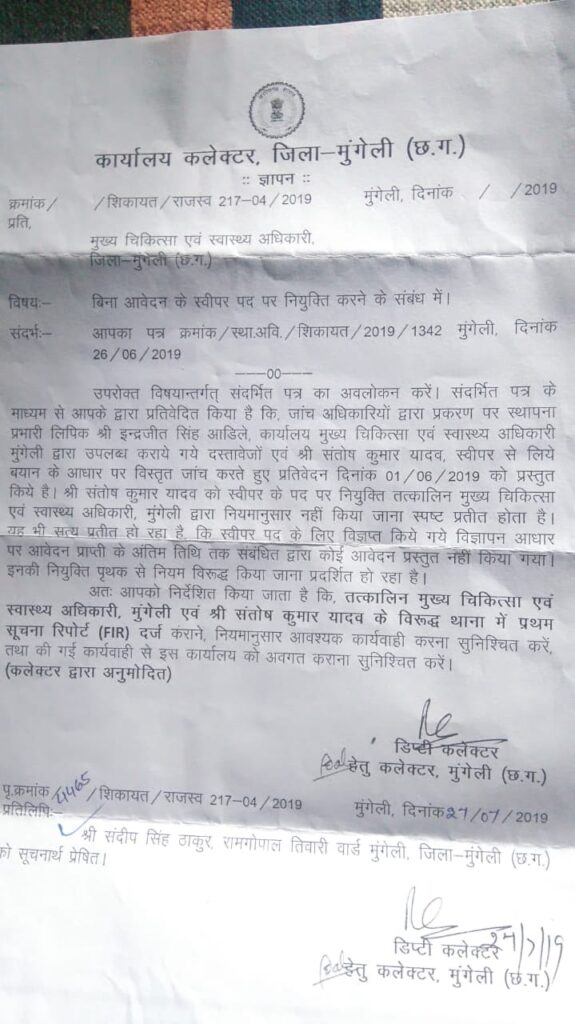 कार्यालय कलेक्टर, जिला–मुंगेली (छ.ग.)
:: ज्ञापन ::
क्रमांक/ /शिकायत/राजस्व 217-04/2019 मुंगेली, दिनांक / /2019
प्रति,
मुख्य चिकित्सा एवं स्वास्थ्य अधिकारी,
जिला–मुंगेली (छ.ग.)
विषयः– बिना आवेदन के स्वीपर पद पर नियुक्ति करने के संबंध में।
संदर्भः– आपका पत्र क्रमांक/स्था.अवि./शिकायत/2019/1342 मुंगेली, दिनांक
26/06/2019
––––00––––
उपरोक्त विषयान्तर्गत् संदर्भित पत्र का अवलोकन करें। संदर्भित पत्र के
माध्यम से आपके द्वारा प्रतिवेदित किया है कि, जांच अधिकारियों द्वारा प्रकरण पर स्थापना
प्रभारी लिपिक श्री इन्द्रजीत सिंह आडिले, कार्यालय मुख्य चिकित्सा एवं स्वास्थ्य अधिकारी
मुंगेली द्वारा उपलब्ध कराये गये दस्तावेजों एवं श्री संतोष कुमार यादव, स्वीपर से लिये
बयान के आधार पर विस्तृत जांच करते हुए प्रतिवेदन दिनांक 01/06/2019 को प्रस्तुत
किये है। श्री संतोष कुमार यादव को स्वीपर के पद पर नियुक्ति तत्कालिन मुख्य चिकित्सा
एवं स्वास्थ्य अधिकारी, मुंगेली द्वारा नियमानुसार नहीं किया जाना स्पष्ट प्रतीत होता है।
यह भी सत्य प्रतीत हो रहा है, कि स्वीपर पद के लिए विज्ञप्त किये गये विज्ञापन आधार
पर आवेदन प्राप्ती के अंतिम तिथि तक संबंधित द्वारा कोई आवेदन प्रस्तुत नहीं किया गया।
इनकी नियुक्ति पृथक से नियम विरूद्ध किया जाना प्रदर्शित हो रहा है।
अतः आपको निर्देशित किया जाता है कि, तत्कालिन मुख्य चिकित्सा एवं
स्वास्थ्य अधिकारी, मुंगेली एवं श्री संतोष कुमार यादव के विरूद्ध थाना में प्रथम
सूचना रिपोर्ट (FIR) दर्ज कराने, नियमानुसार आवश्यक कार्यवाही करना सुनिश्चित करें,
तथा की गई कार्यवाही से इस कार्यालय को अवगत कराना सुनिश्चित करें।
(कलेक्टर द्वारा अनुमोदित)
डिप्टी कलेक्टर
हेतु कलेक्टर, मुंगेली (छ.ग.)
पृ.क्रमांक/4465/शिकायत/राजस्व 217-04/2019 मुंगेली, दिनांक 27/07/2019
प्रतिलिपिः–
श्री संदीप सिंह ठाकुर, रामगोपाल तिवारी वार्ड मुंगेली, जिला–मुंगेली (छ.ग.)
को सूचनार्थ प्रेषित।
डिप्टी कलेक्टर
हेतु कलेक्टर, मुंगेली (छ.ग.)